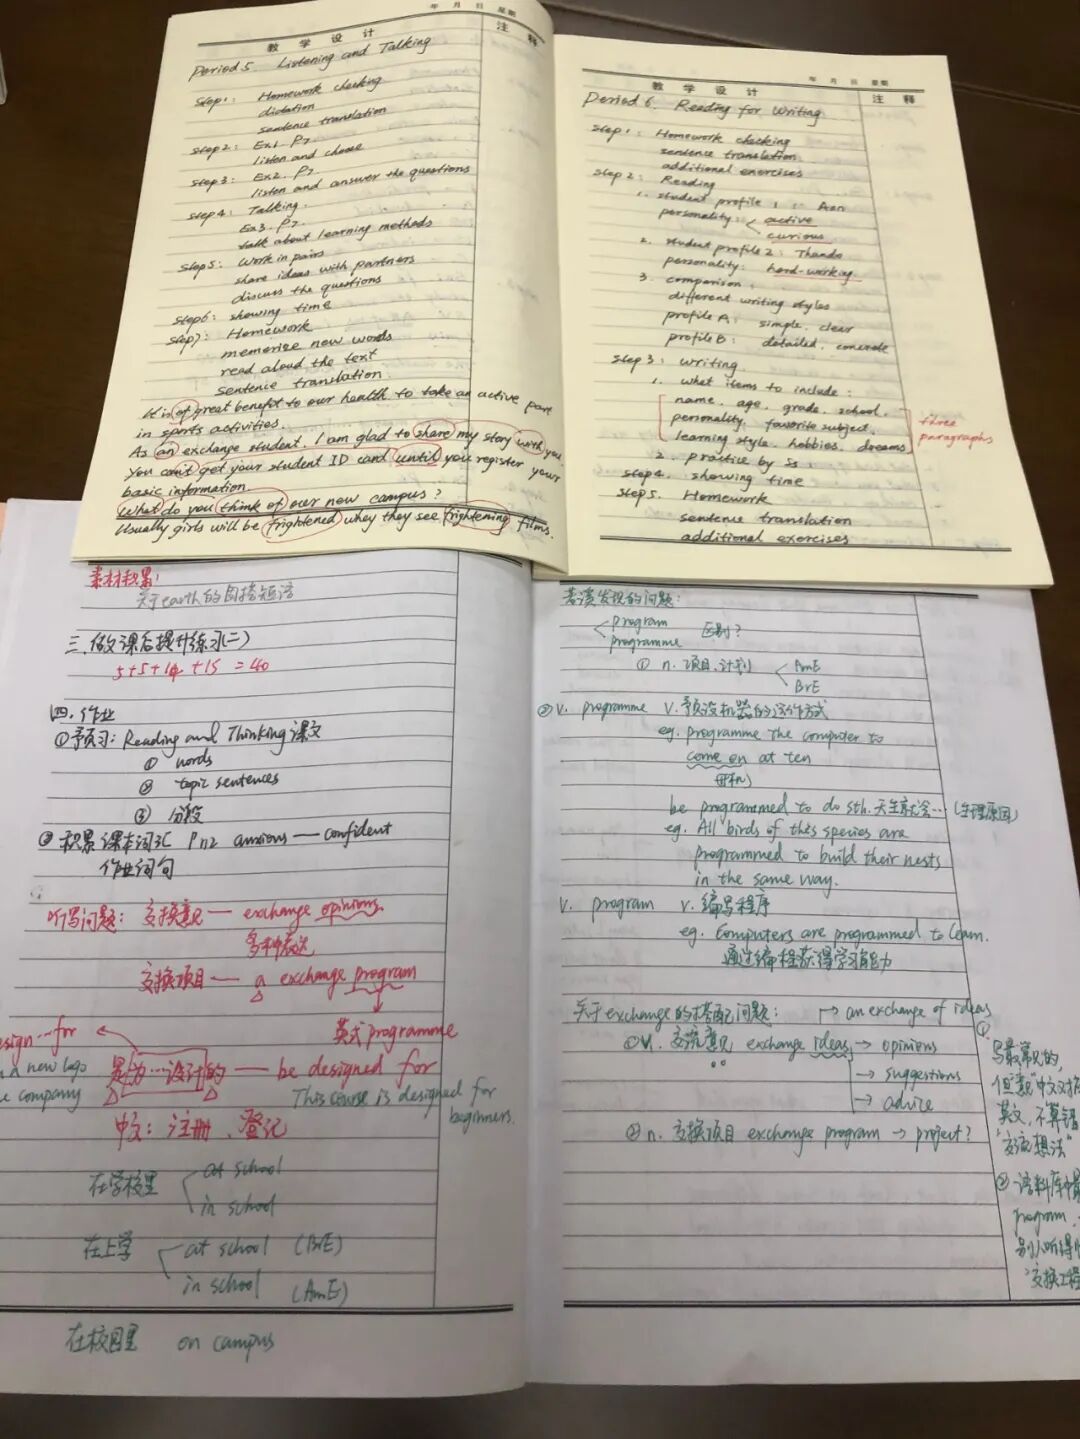 年 月 日 星期
教 学 设 计 注 释
Period 5. Listening and Talking
Step1: Homework checking
dictation
sentence translation
Step2: Ex1. P7
listen and choose
Step3: Ex2. P7
listen and answer the questions
Step4: Talking.
Ex3. P7
talk about learning methods
Step5: Work in pairs
share ideas with partners
discuss the questions
Step6: showing time
Step7: Homework
memorize new words
read aloud the text
sentence translation
It is of great benefit to our health to take an active part
in sports activities.
As an exchange student, I am glad to share my story with you.
You can't get your student ID card until you register your
basic information.
What do you think of our new campus?
Usually girls will be frightened whey they see frightening films.
年 月 日 星期
教 学 设 计 注 释
Period 6. Reading for Writing
Step1: Homework checking
sentence translation
additional exercises
Step2: Reading
1. student profile 1:
personality: active
curious
2. student profile 2: Thando
personality: hard-working
3. comparison:
different writing styles
profile A: simple. clear
profile B: detailed. concrete
Step3: writing.
1. what items to include:
name, age, grade, school,
personality, favorite subject,
learning style, hobbies, dreams
three
paragraphs
2. practice by Ss.
Step4. showing time
Step5. Homework
sentence translation
additional exercises
素材积累:
关于earth的固搭短语
三.做课后提升练习(二)
5+5+14+15=40
四.作业
①预习: Reading and Thinking 课文
① words
② topic sentences
③ 分段
②积累课本词汇 P112 anxious — confident
作业词句
听写问题: 交换意见 — exchange opinions.
多种表达
交换项目 — a exchange program
英式programme
esign…for
a new logo
e company
是为…设计的 — be designed for
This course is designed for
beginners.
中文: 注册、登记
在学校里 at school
in school
在上学 at school (BrE)
in school (AmE)
在校园里 on campus
program
programme 区别?
① n. 项目,计划 AmE
BrE
② v. programme v.预设机器的运作方式
eg. programme the computer to
come on at ten
be programmed to do sth.天生就会…(生理原因)
eg. All birds of this species are
programmed to build their nests
in the same way.
v. program v.编写程序
eg. Computers are programmed to learn.
通过编程获得学习能力
关于exchange的搭配问题: → an exchange of ideas
①v. 交流意见 exchange ideas → opinions
→ suggestions
→ advice
② n. 交换项目 exchange program → project?
①
写最常见的,
英文,不算错
"交流想法"
②语料库中
program,